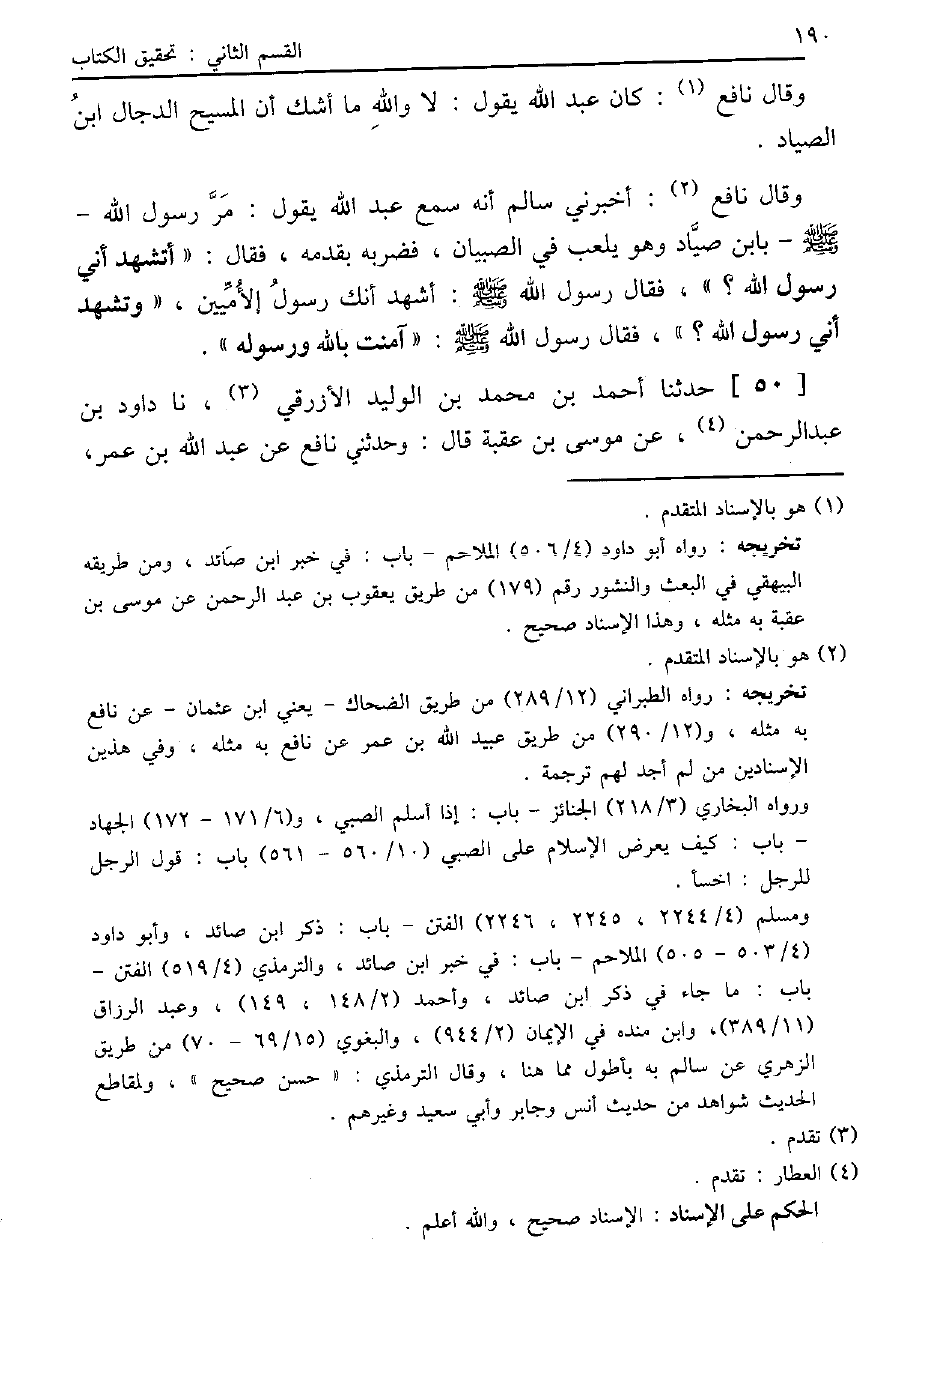 ١٩٠
القسم الثاني : تحقيق الكتاب
وقال نافع (١) : كان عبد الله يقول : لا واللهِ ما أشك أن المسيح الدجال ابنُ
الصياد .
وقال نافع (٢) : أخبرني سالم أنه سمع عبد الله يقول : مَرَّ رسول الله -
ﷺ - بابن صيَّاد وهو يلعب في الصبيان ، فضربه بقدمه ، فقال : « أتشهد أني
رسول الله ؟ » ، فقال رسول الله ﷺ : أشهد أنك رسولُ الأُمِّيين ، « وتشهد
أني رسول الله ؟ » ، فقال رسول الله ﷺ : « آمنت بالله ورسوله » .
[ ٥٠ ] حدثنا أحمد بن محمد بن الوليد الأزرقي (٣) ، نا داود بن
عبدالرحمن (٤) ، عن موسى بن عقبة قال : وحدثني نافع عن عبد الله بن عمر،
(١) هو بالإسناد المتقدم .
تخريجه : رواه أبو داود (٥٠٦/٤) الملاحم - باب : في خبر ابن صائد ، ومن طريقه
البيهقي في البعث والنشور رقم (١٧٩) من طريق يعقوب بن عبد الرحمن عن موسى بن
عقبة به مثله ، وهذا الإسناد صحيح .
(٢) هو بالإسناد المتقدم .
تخريجه : رواه الطبراني (٢٨٩/١٢) من طريق الضحاك - يعني ابن عثمان - عن نافع
به مثله ، و(٢٩٠/١٢) من طريق عبيد الله بن عمر عن نافع به مثله ، وفي هذين
الإسنادين من لم أجد لهم ترجمة .
ورواه البخاري (٢١٨/٣) الجنائز - باب : إذا أسلم الصبي ، و(١٧١/٦ - ١٧٢) الجهاد
- باب : كيف يعرض الإسلام على الصبي (٥٦٠/١٠ - ٥٦١) باب : قول الرجل
للرجل : اخسأ .
ومسلم (٢٢٤٤/٤ ، ٢٢٤٥ ، ٢٢٤٦) الفتن - باب : ذكر ابن صائد ، وأبو داود
(٥٠٣/٤ - ٥٠٥) الملاحم - باب : في خبر ابن صائد ، والترمذي (٥١٩/٤) الفتن -
باب : ما جاء في ذكر ابن صائد ، وأحمد (١٤٨/٢ ، ١٤٩) ، وعبد الرزاق
(٣٨٩/١١)، وابن منده في الإيمان (٩٤٤/٢) ، والبغوي (٦٩/١٥ - ٧٠) من طريق
الزهري عن سالم به بأطول مما هنا ، وقال الترمذي : « حسن صحيح » ، ولمقاطع
الحديث شواهد من حديث أنس وجابر وأبي سعيد وغيرهم .
(٣) تقدم .
(٤) العطار : تقدم .
الحكم على الإسناد : الإسناد صحيح ، والله أعلم .